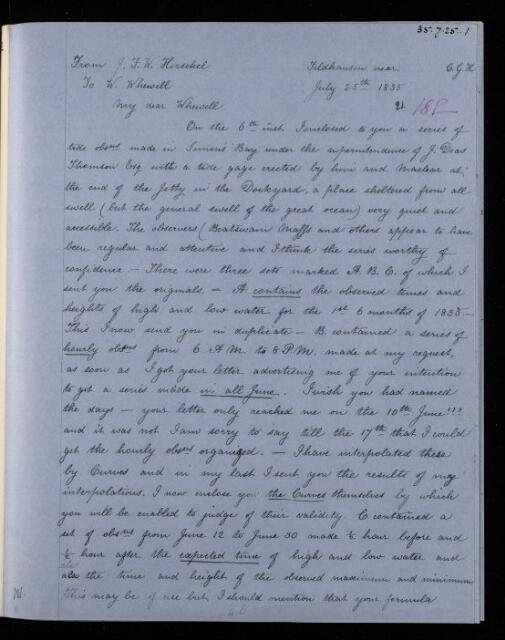 35·7·25·1
From J. F. W. Herschel Feldhausen near C.G.H
To W. Whewell July 25th 1835
21 182
My dear Whewell
On the 6th inst. I enclosed to you a series of
tide obsns made in Simon's Bay under the superintendence of J. Deas
Thomson Esq with a tide gage erected by him and Maclear at
the end of the Jetty in the Dockyard, a place sheltered from all
swell (but the general swell of the great ocean) very quiet and
accessible. The observers (Boatswain Maffs and others appear to have
been regular and attentive and I think the series worthy of
confidence – There were three sets marked A. B. C. of which I
sent you the originals. – A. contains the observed times and
heights of high and low water for the 1st 6 months of 1835 –
This I now send you in duplicate – B. contained a series of
hourly obsns from 6 A.M. to 8 P.M. made at my request,
as soon as I got your letter advertising me of your intention
to get a series made in all June. I wish you had named
the days – your letter only reached me on the 10th June!!!
and it was not I am sorry to say till the 17th that I could
get the hourly obsns organized. – I have interpolated these
by Curves and in my last I sent you the results of my
interpolations. I now enclose you the Curves themselves by which
you will be enabled to judge of their validity. C contained a
set of obsns from June 12 to June 30 made ½ hour before and
½ hour after the expected time of high and low water and
also the time and height of the observed maximum and minimum
This may be of use but I should mention that your formula